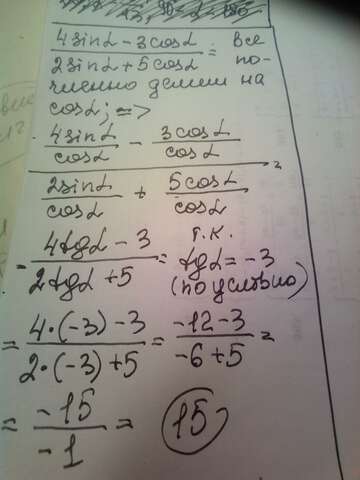 4sinα - 3cosα
2sinα + 5cosα = все по-
членно делим на
cosα; =>
4sinα/cosα - 3cosα/cosα
2sinα/cosα + 5cosα/cosα =
= 4tgα - 3 / 2tgα + 5 = т.к. tgα = -3
(по условию)
= 4·(-3) - 3 / 2·(-3) + 5 = -12 - 3 / -6 + 5 =
= -15 / -1 = 15